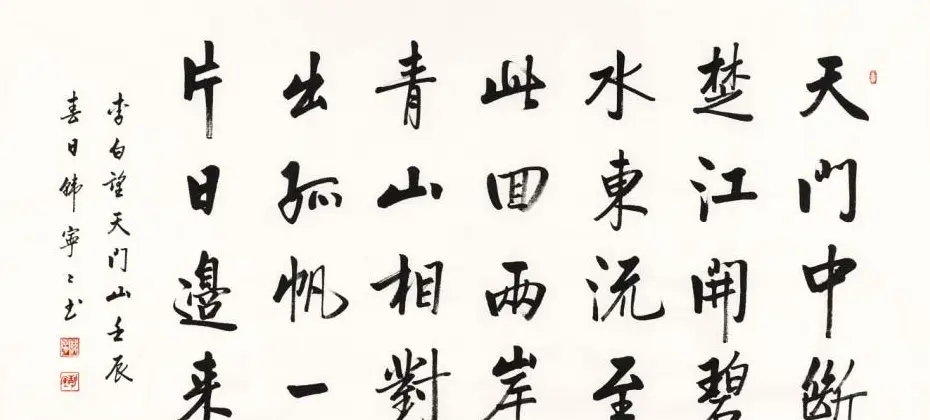 天門中斷
楚江開碧
水東流至
此回兩岸
青山相對
出孤帆一
片日邊来
李白望天門山壬辰
春日韩寧〻书